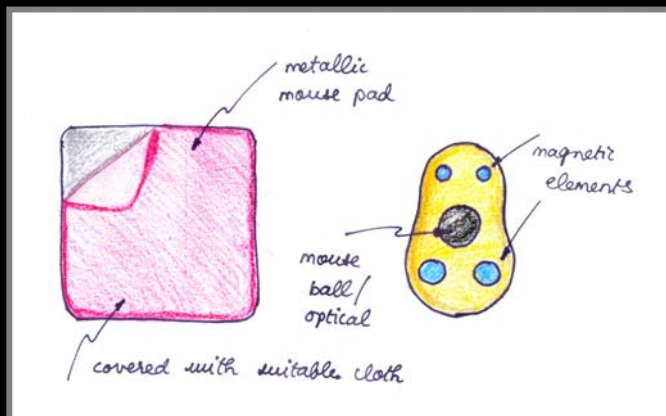 metallic
mouse pad
magnetic
elements
mouse
ball/
optical
covered with suitable cloth